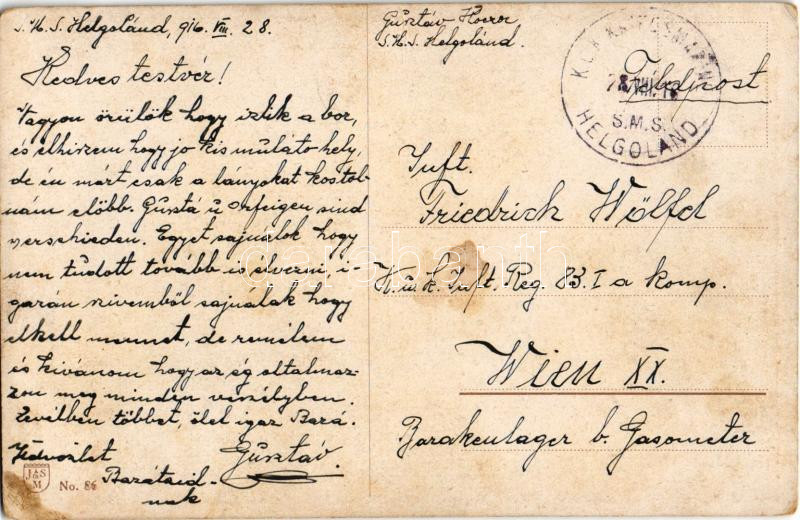 S.M.S. Helgoland, 916. VIII. 28.
Kedves testvér!
Nagyon örülök hogy izlik a bor,
és elhiszem hogy jo kis mulato hely,
de én mást csak a lányokat kostol-
nám előbb. Gusta u. Orfeigen sind
verschieden. Egyet sajnalok hogy
nem tudott tovább is élvezni, i-
gazán szivemből sajnalak hogy
elkell menned, de remélem
és kivánom hogy az ég oltalmaz-
zon meg minden veszélyben.
Levélben többet, ölel igaz Bará.
Üdvözlet Gusztáv.
Barátaid-
nak
JAS
M
No. 86
Gusztáv
S.M.S. Helgoland.
Feldpost
K.U.K. KRIEGSMARINE
28 VIII 16
S.M.S.
HELGOLAND
Inft.
Friedrich Wölfel
K.u.k. Inft. Reg. 83. I a komp.
Wien XX.
Barakenlager b. Gasometer
darabanth